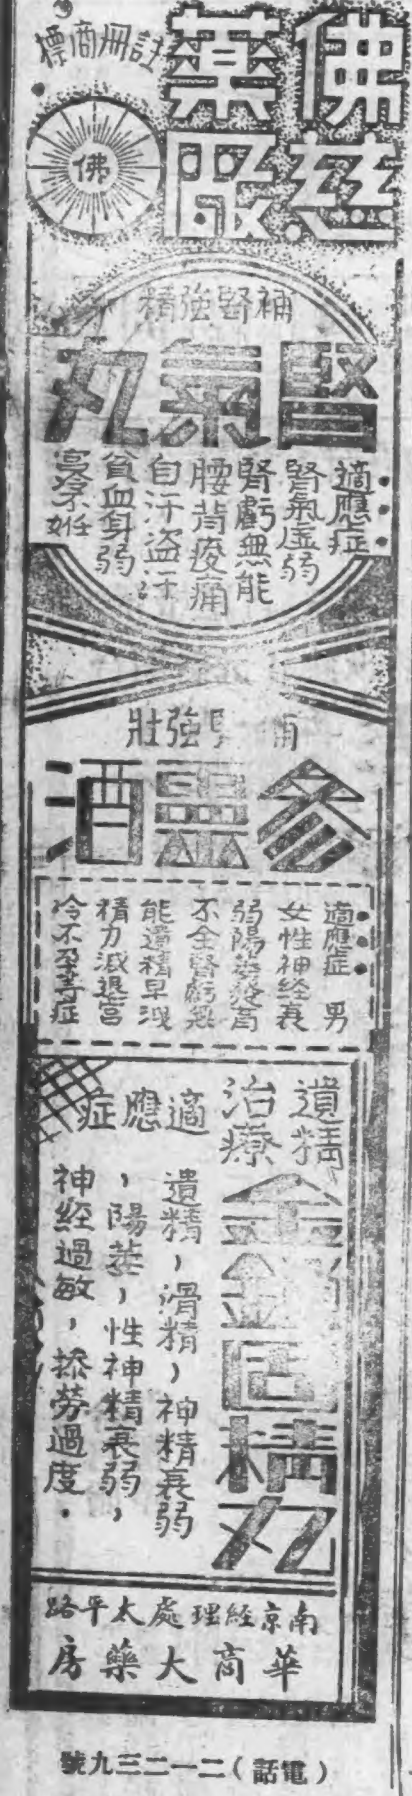 佛慈
藥厰
註冊商標
佛
補腎強精
腎氣丸
適應症
腎氣虛弱
腎虧無能
腰背痠痛
自汗盜汗
貧血身弱
宮冷不姙
補腎強壯
參靈酒
適應症 男
女性神經衰
弱陽萎發育
不全腎虧無
能遺精早洩
精力減退宮
冷不孕等症
遺精
治療
金鎖固精丸
適應症
遺精，滑精，神精衰弱
，陽萎，性神精衰弱，
神經過敏，操勞過度．
南京經理處太平路
華商大藥房
（電話）二一二三九號